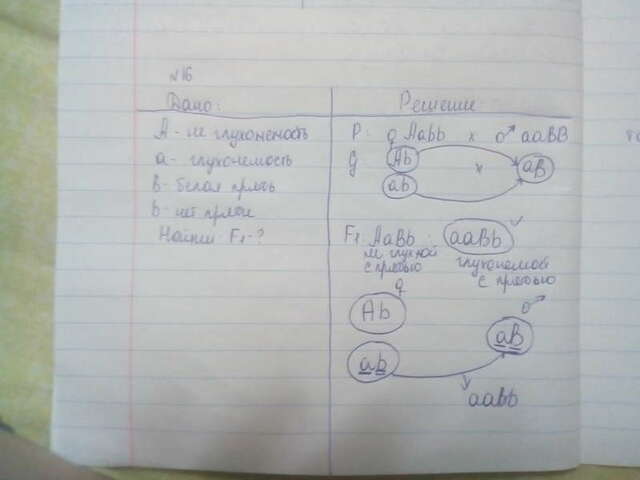 №16
Дано:
Решение
А - не глухонемость
а - глухонемость
В - белая прядь
b - нет пряди
Найти: F₁ - ?
P: ♀ Aabb x ♂ aaBB
g: Ab x aB
ab
F₁: AaBb : aaBb ✓
не глухой с прядью
глухонемой с прядью
♀
Ab
♂
aB
ab
aaBb